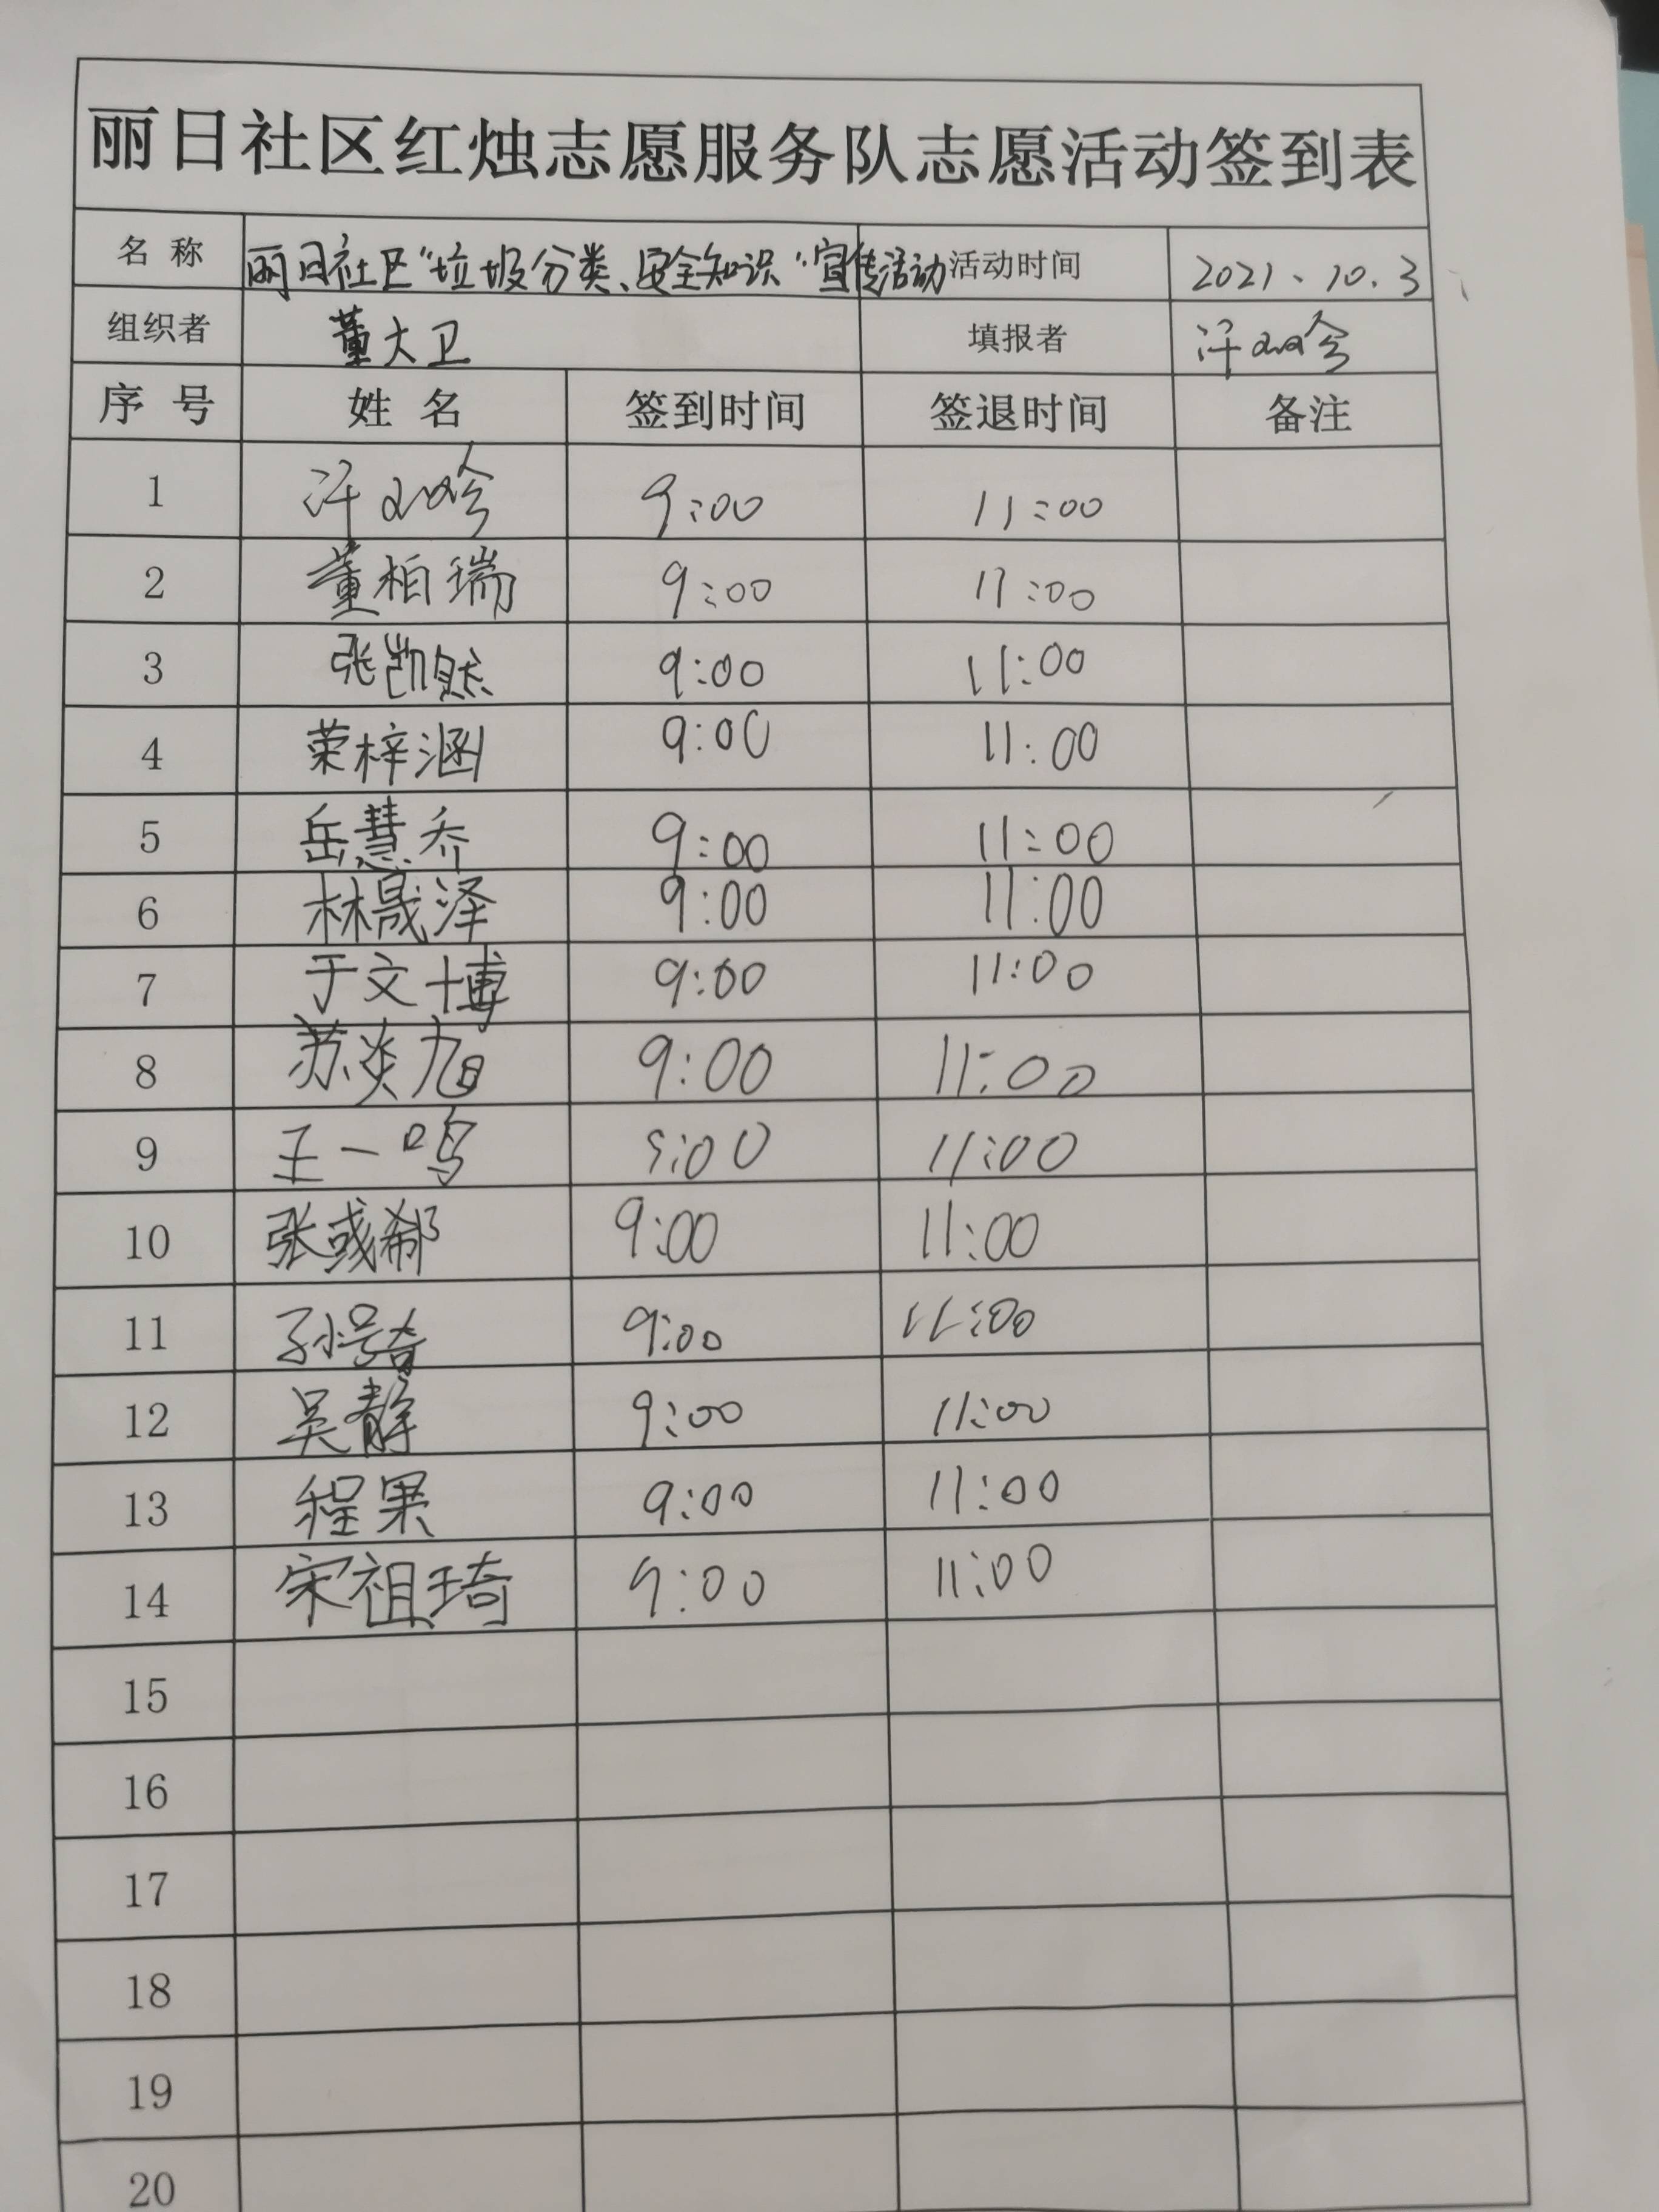 丽日社区红烛志愿服务队志愿活动签到表
名 称 丽日社区“垃圾分类、安全知识“宣传活动 活动时间 2021、10.3
组织者 董大卫 填报者
序 号 姓 名 签到时间 签退时间 备注
1 9:00 11:00
2 董柏瑞 9:00 11:00
3 张凯然 9:00 11:00
4 荣梓涵 9:00 11:00
5 岳慧乔 9:00 11:00
6 林晟泽 9:00 11:00
7 于文博 9:00 11:00
8 苏炎旭 9:00 11:00
9 王一鸣 9:00 11:00
10 张彧郗 9:00 11:00
11 9:00 11:00
12 吴静 9:00 11:00
13 程果 9:00 11:00
14 宋祖琦 9:00 11:00
15
16
17
18
19
20